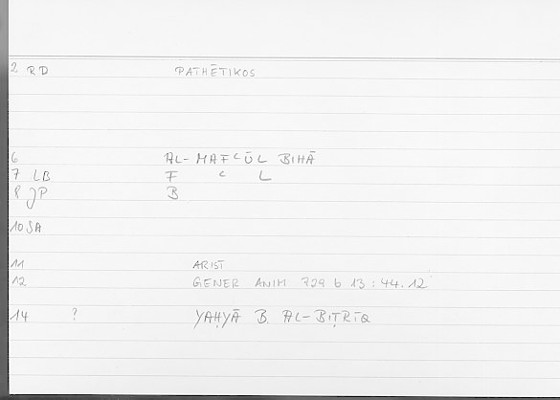 2 RD PATHĒTIKOS
6 AL-MAFʿŪL BIHĀ
7 LB F ʿ L
8 JP B
10 SA
11 ARIST
12 GENER ANIM 729 b 13 : 44.12
14 ? YAḤYĀ B. AL-BIṬRĪQ